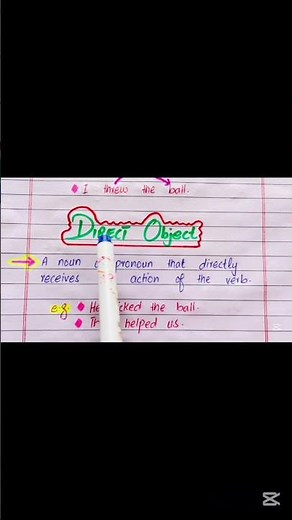 I threw the ball.
DIRECT OBJECT
A noun pronoun that directly
receives action of the verb.
e.g. He kicked the ball.
helped us.
CapCut